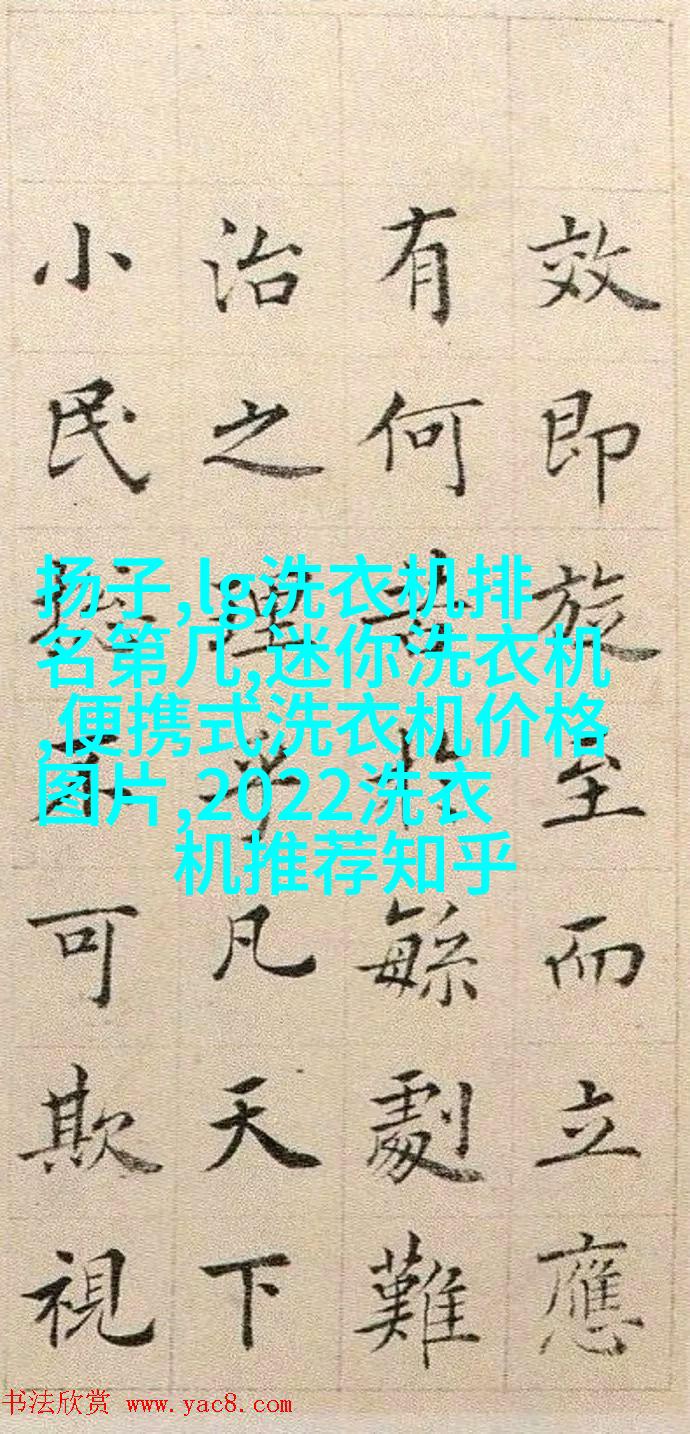 效即旋至而立應
有何於緐劇難
治之理乎凡天下
小民可欺視
扬子,lg洗衣机排
名第几,迷你洗衣机
,便携式洗衣机价格
图片,2022洗衣
机推荐知乎
书法欣赏 www.yac8.com